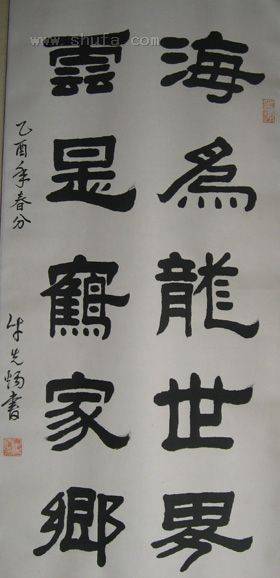 海為龍世界
雲是鶴家鄉
乙酉年春分
牛先惕書
www.shufa.com